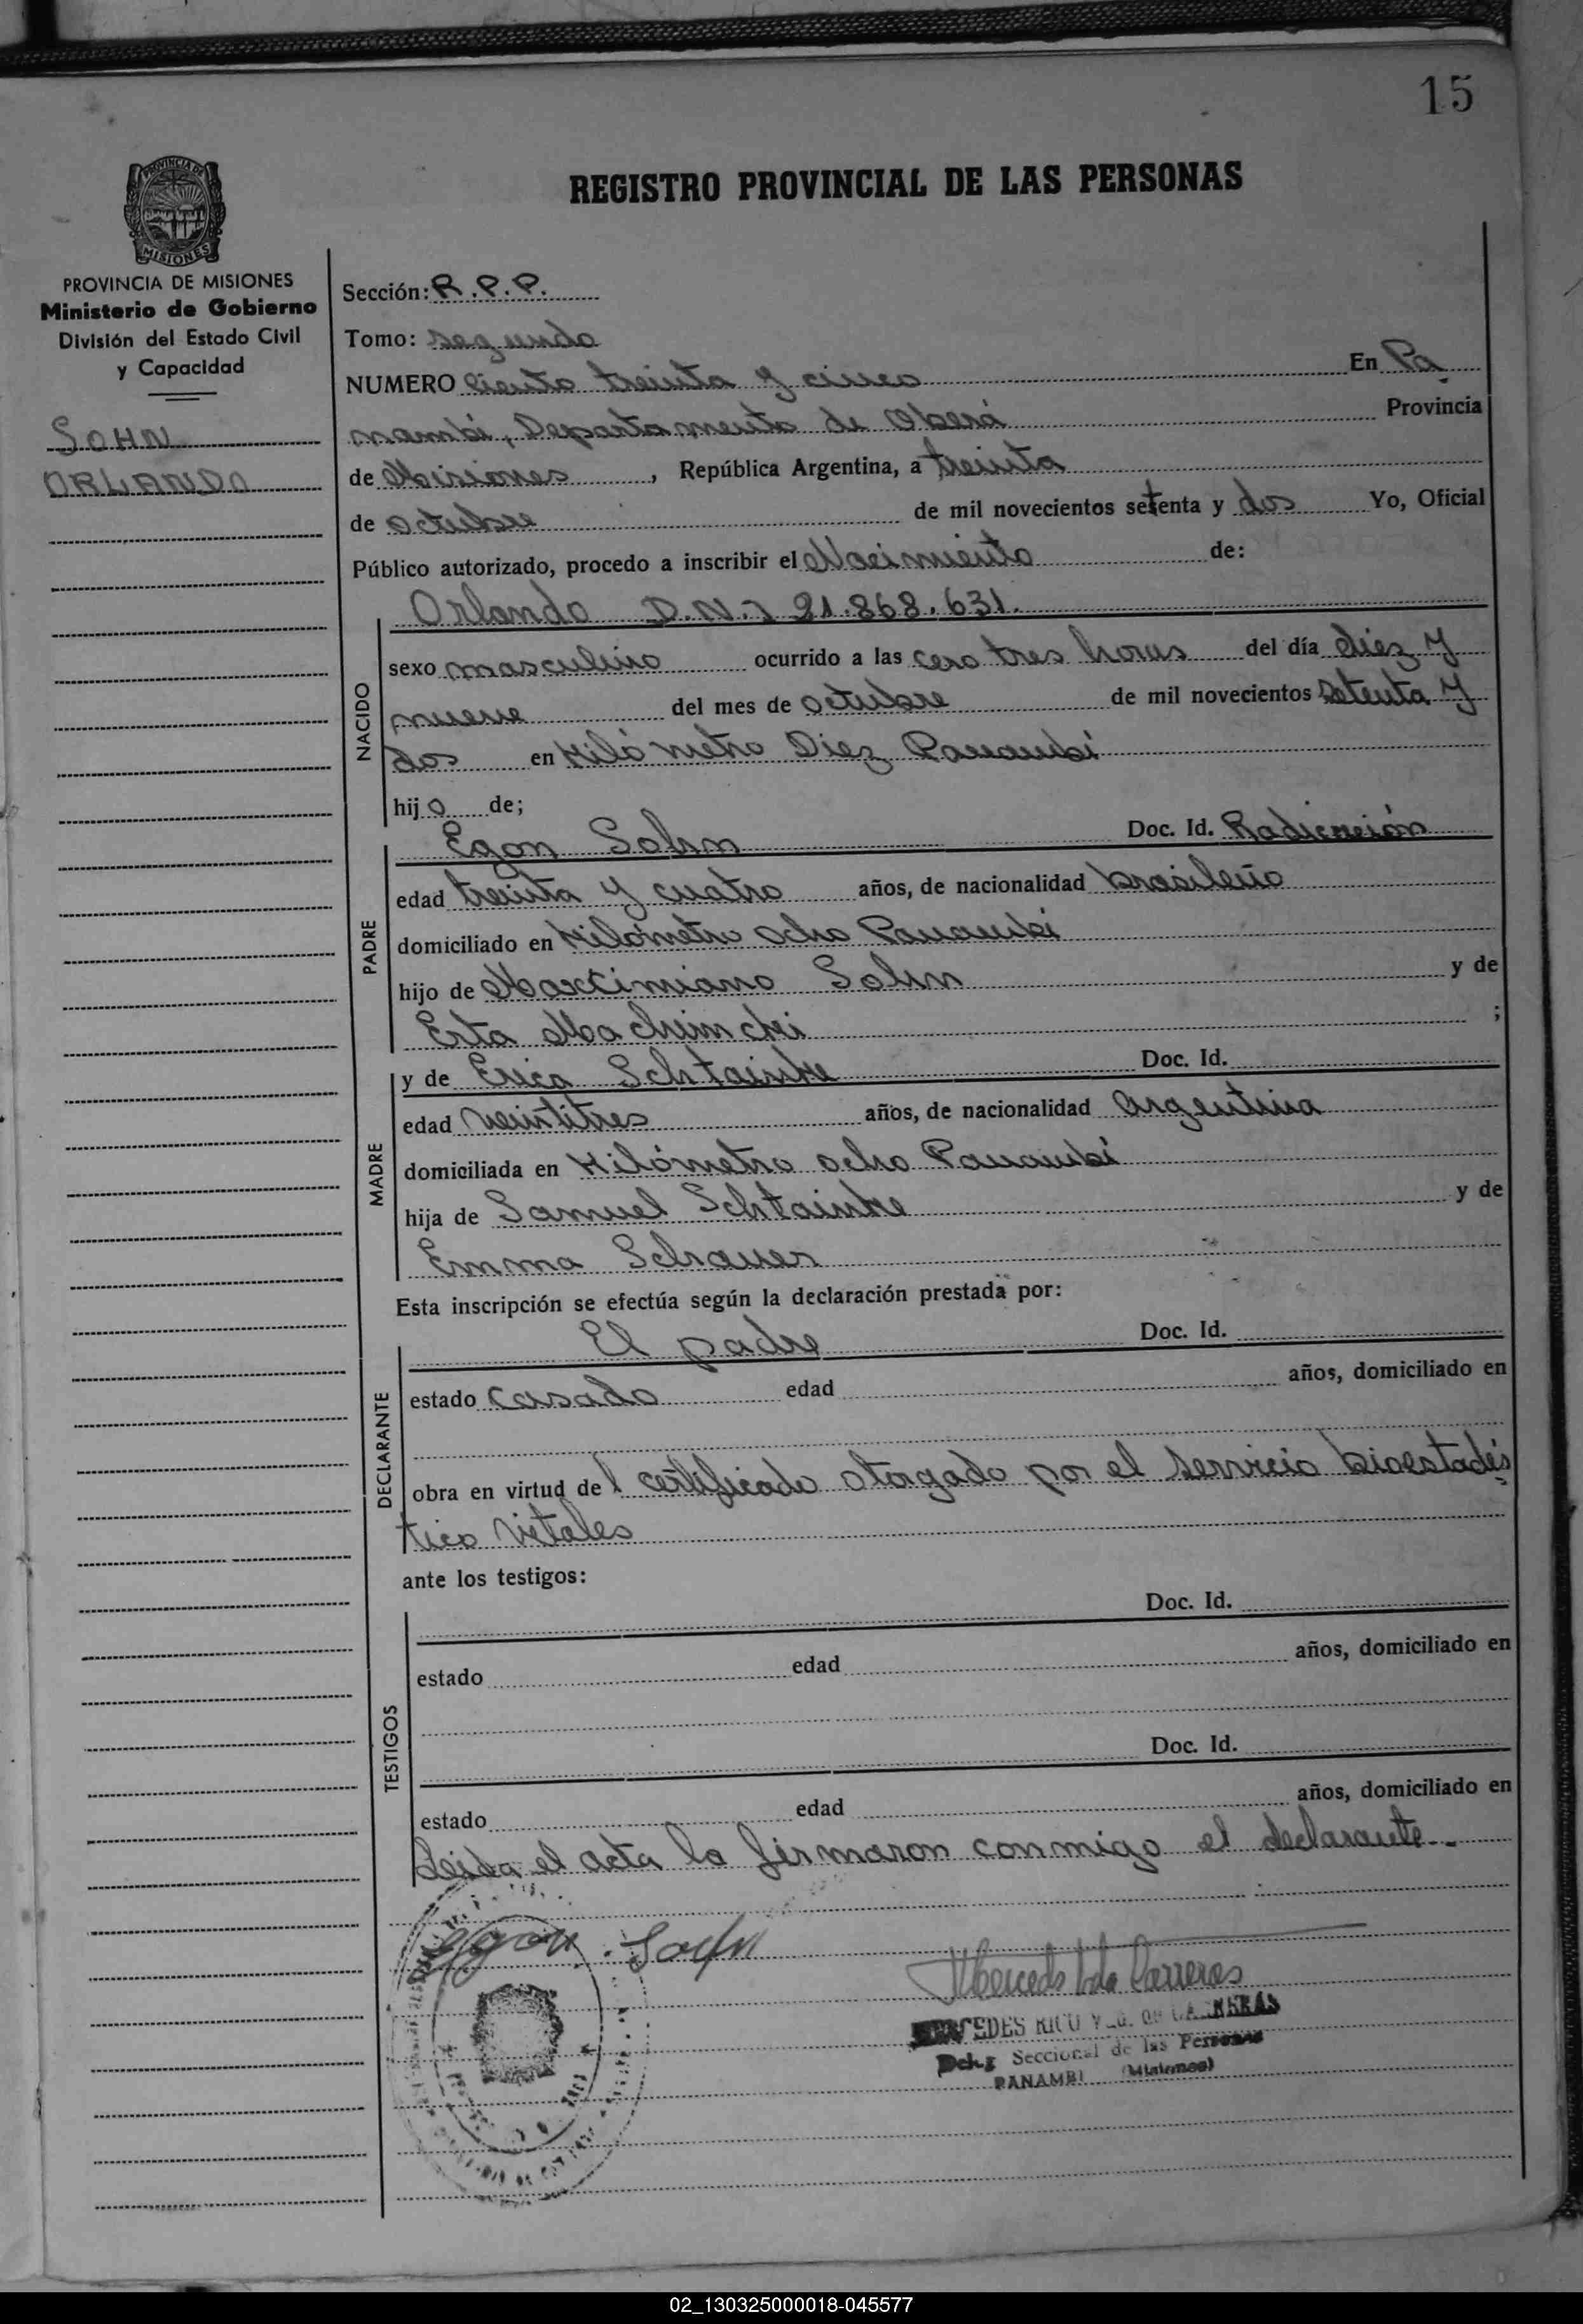 15
REGISTRO PROVINCIAL DE LAS PERSONAS
PROVINCIA DE
MISIONES
PROVINCIA DE MISIONES
Ministerio de Gobierno
División del Estado Civil
y Capacidad
SOHN
ORLANDO
Sección: R.P.P.
Tomo: segundo
NUMERO Ciento treinta y cinco En Pa
nambi, Departamento de Oberá Provincia
de Misiones, República Argentina, a treinta
de octubre de mil novecientos setenta y dos Yo, Oficial
Público autorizado, procedo a inscribir el Nacimiento de:
Orlando D.N.I 21.868.631.
NACIDO
sexo masculino ocurrido a las cero tres horas del día diez y
nueve del mes de octubre de mil novecientos setenta y
dos en Kilómetro Diez Panambí
hijo de;
PADRE
Egon Sohn Doc. Id. Radicación
edad treinta y cuatro años, de nacionalidad brasileño
domiciliado en Kilómetro ocho Panambi
hijo de Maxcimiano Sohn y de
Erta Machinchi ;
MADRE
y de Erica Schtainke Doc. Id.
edad veintitres años, de nacionalidad argentina
domiciliada en Kilómetro ocho Panambí
hija de Samuel Schtainke y de
Emma
Esta inscripción se efectúa según la declaración prestada por:
DECLARANTE
El padre Doc. Id.
estado casado edad años, domiciliado en
obra en virtud del certificado otorgado por el servicio bioestadís
tico vitales
ante los testigos:
TESTIGOS
Doc. Id.
estado edad años, domiciliado en
Doc. Id.
estado edad años, domiciliado en
Leida el acta la firmaron conmigo el declarante.-
Egon Sohn
MERCEDES RICO Vda. DE CARRERAS
Deleg Seccional de las Personas
PANAMBI (Misiones)
02_130325000018-045577